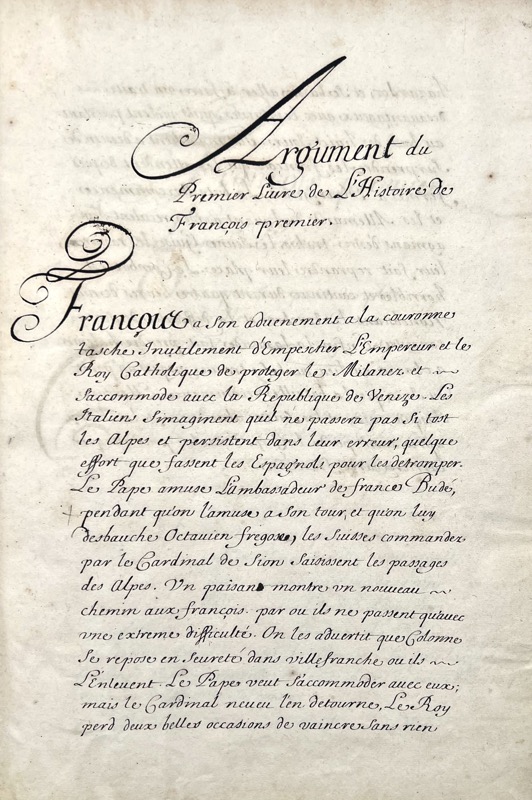 Argument du
Premier Liure de L'Histoire de
François premier.
François a son aduenement a la couronne
tasche Inutilement d'Empescher L'Empereur et le
Roy Catholique de proteger le Milanez et
s'accommode avec la Republique de Venize. Les
Italiens s'imaginent quil ne passera pas si tost
les Alpes et persistent dans leur erreur, quelque
effort que fassent les Espagnols pour les detromper.
Le Pape amuse L'ambassadeur de france Budé,
pendant qu'on l'amuse a son tour, et qu'on luy
desbauche Octavien fregose, les suisses commandez
par le Cardinal de Sion saisissent les passages
des Alpes. Vn paisan montre vn nouveau
chemin aux françois. par ou ils ne passent qu'avec
vne extreme difficulté. On les advertit que Colonne
se repose en seureté dans villefranche ou ils
L'Enlevent. Le Pape veut s'accommoder avec eux;
mais le Cardinal neveu l'en detourne, Le Roy
perd deux belles occasions de vaincre sans rien